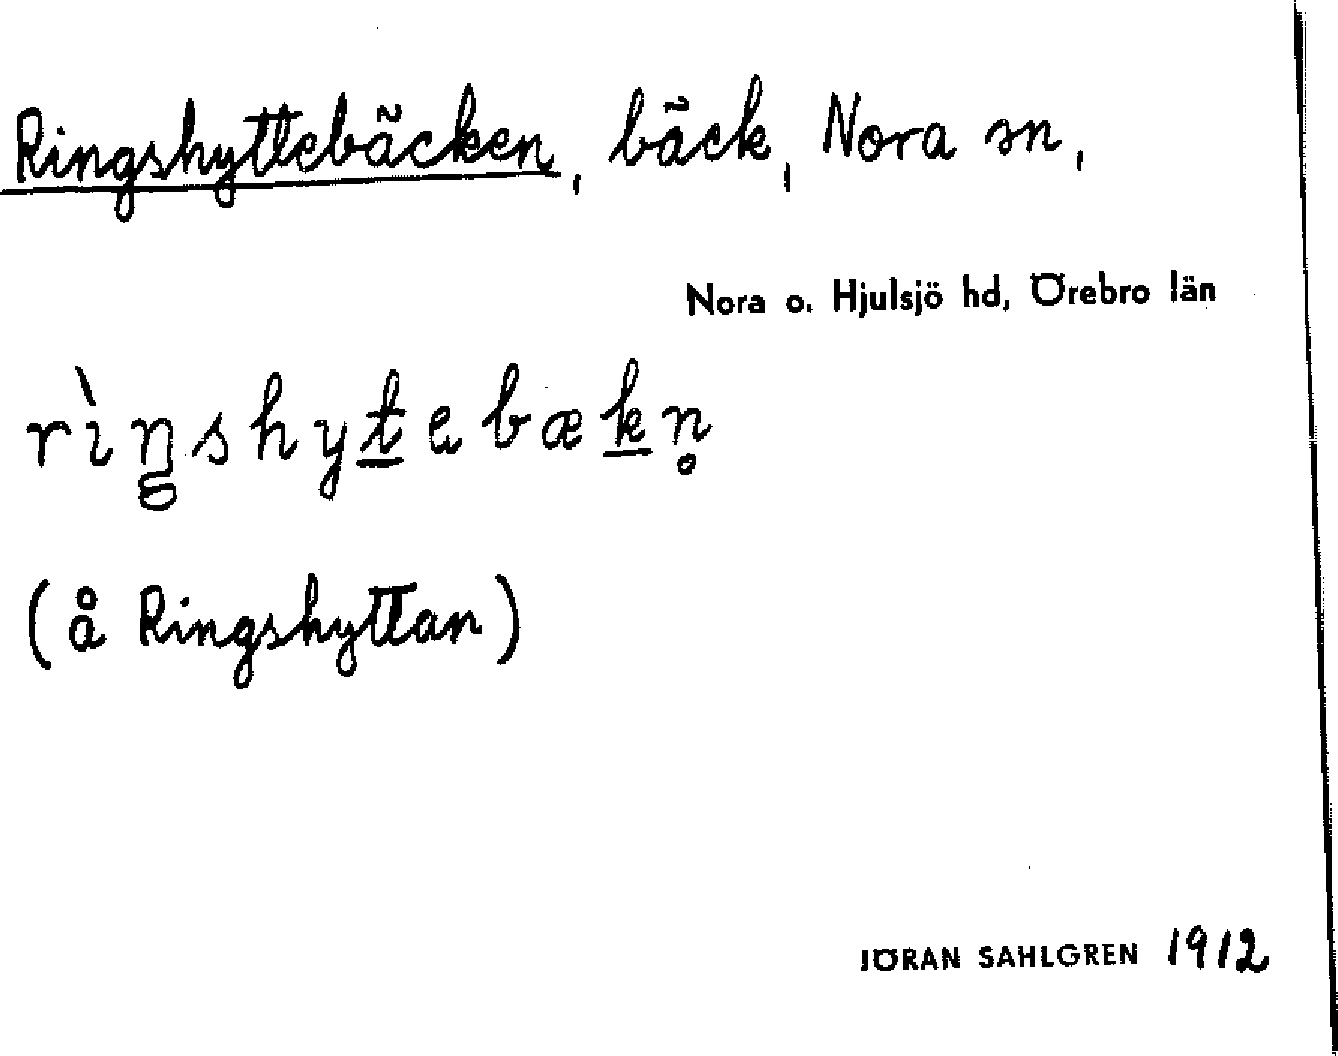 Ringshyttebäcken, bäck, Nora sn,
Nora o. Hjulsjö hd, Örebro län
rìŋshyt̲ebæk̲n̥
(å Ringshyttan)
JÖRAN SAHLGREN 1912